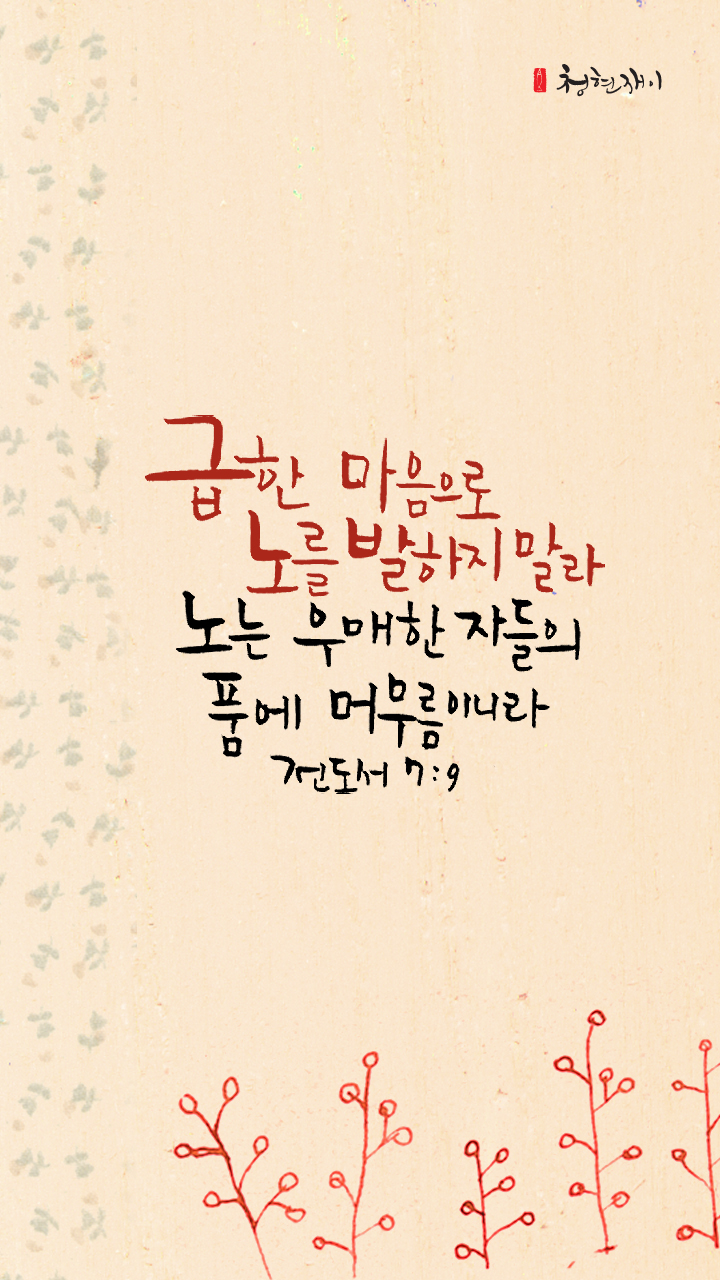 청현재이
급한 마음으로
노를 발하지 말라
노는 우매한 자들의
품에 머무름이니라
전도서 7:9